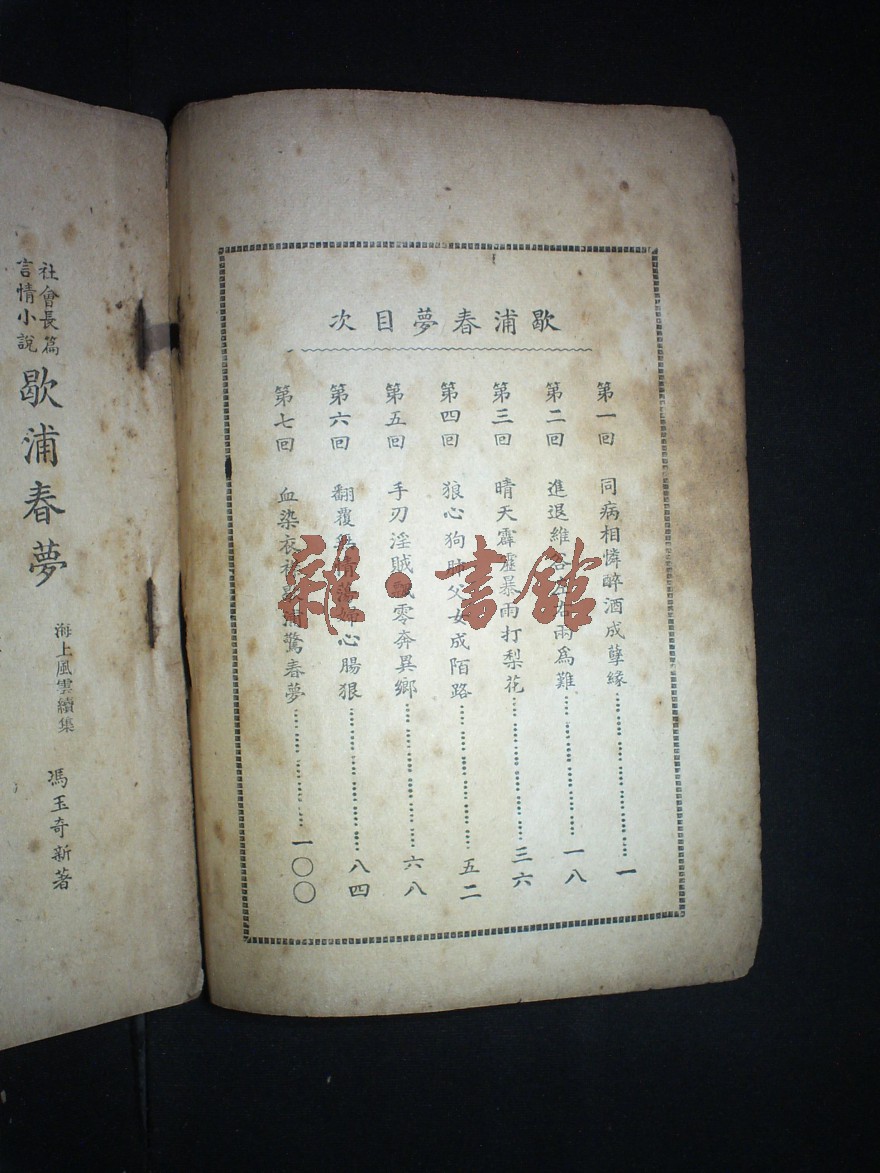 歇浦春夢目次
第一回 同病相憐醉酒成孽緣 一
第二回 進退維谷左右兩爲難 一八
第三回 晴天霹靂暴雨打梨花 三六
第四回 狼心狗肺父女成陌路 五二
第五回 手刃淫賊飄零奔異鄉 六八
第六回 翻覆 婦心腸狠 八四
第七回 血染衣 浦驚春夢 一〇〇
社會長篇
言情小說
歇浦春夢
海上風雲續集
馮玉奇新著
雜·書館